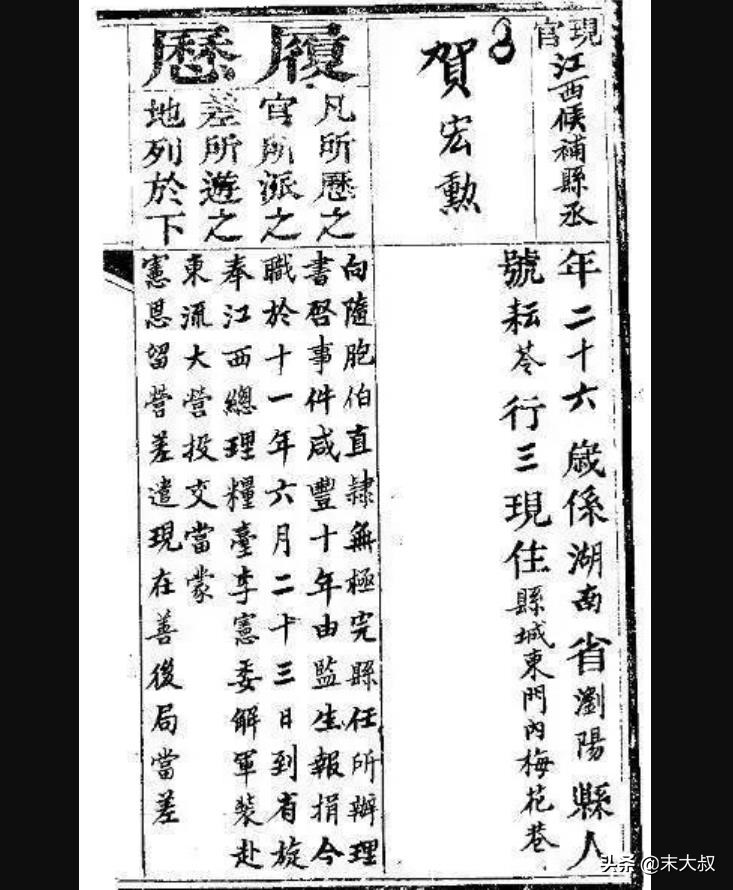 現官
江西候補縣丞
賀宏勳
年二十六歲係湖南省瀏陽縣人
號耘苓行三現住縣城東門內梅花巷
履歷
凡所歷之
官所派之
差所遊之
地列於下
向隨胞伯直隸無極完縣任所辦理
書啓事件咸豐十年由監生報捐今
職於十一年六月二十三日到省旋
奉江西總理糧臺李憲委解軍裝赴
東流大營投交當蒙
憲恩留營差遣現在善後局當差
头条 @末大叔